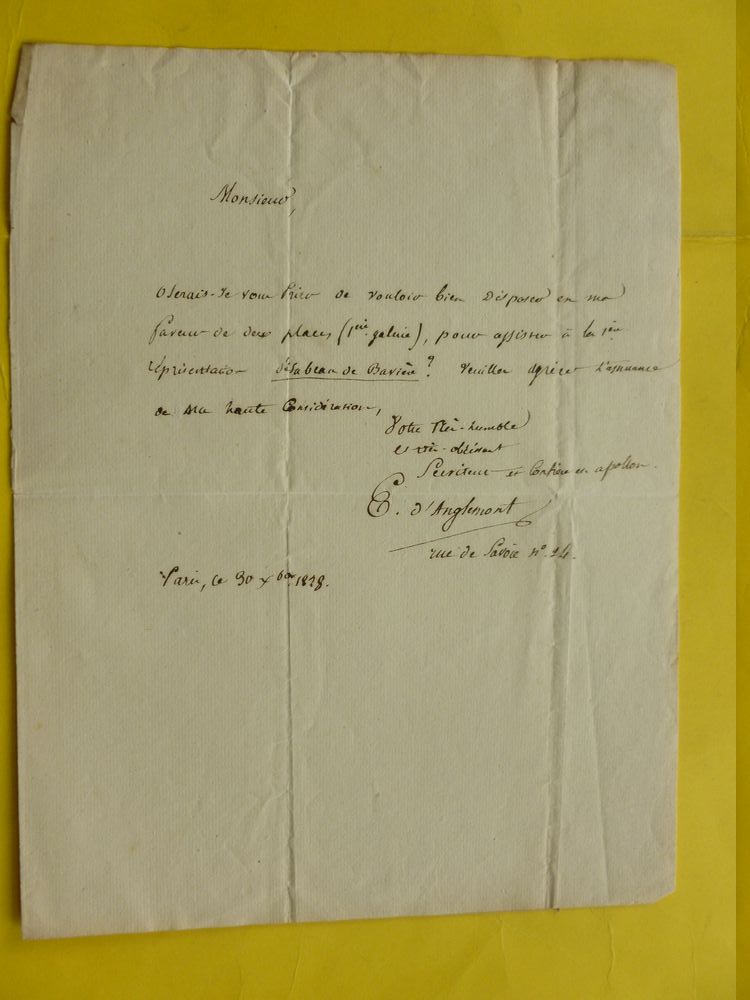 Monsieur,
Oserais-Je vous Prier de vouloir bien Disposer en ma
faveur de deux places (1ère galerie), pour assister à la 1ère
représentation d'Isabeau de Bavière ? Veuillez agréer l'assurance
de ma haute Considération,
Votre très-humble
et très-obéissant
Serviteur et Confrère en apollon.
E. d'Anglemont
rue de Savoie n° 24.
Paris, ce 30 Xbre 1828.